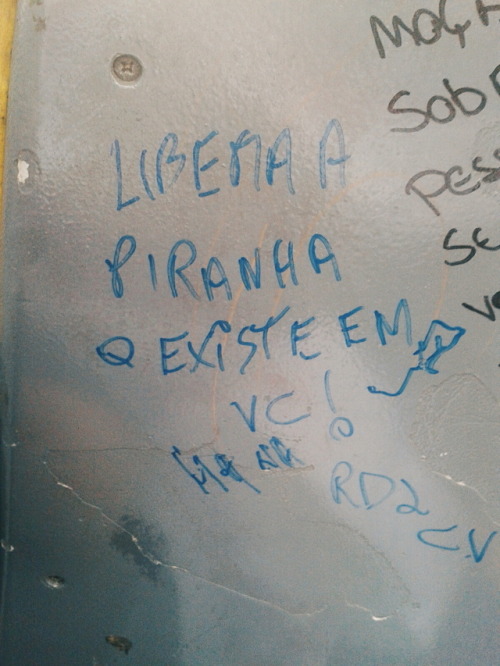 MOÇA
SOB
PES
SE
LIBEMA A
PIRANHA
Q EXISTE EM
VC!
RD2
CV